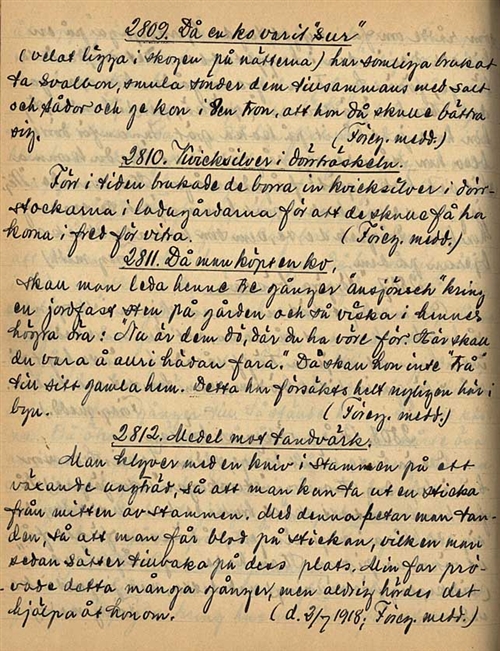 2809. Då en ko varit "sur"
(velat ligga i skogen på nätterna) har somliga brukat
ta svalbon, smula sönder dem tillsammans med salt
och sådor och ge kon i den tron, att hon då skulle bättra
sig. (Föreg. medd.)
2810. Kvicksilver i dörrtröskeln.
Förr i tiden brukade de borra in kvicksilver i dörr-
stockarna i ladugårdarna för att de skulle få ha
korna i fred för vitra. (Föreg. medd.)
2811. Då man köpt en ko,
skall man leda henne tre gånger "ansjönsch" kring
en jordfast sten på gården och så viska i hennes
högra öra: "Nu är dem dö, där du ha vöre för. Här skall
du vara å alri hädan fara." Då skall hon inte "trå"
till sitt gamla hem. Detta har försökts helt nyligen här i
byn. (Föreg. medd.)
2812. Medel mot tandvärk.
Man klyver med en kniv i stammen på ett
växande ungträd, så att man kan ta ut en sticka
från mitten av stammen. Med denna petar man tan-
den, så att man får blod på stickan, vilken man
sedan sätter tillbaka på dess plats. Min far prö-
vade detta många gånger, men aldrig hördes det
hjälpa åt honom. (d. 2/7 1918, Föreg. medd.)